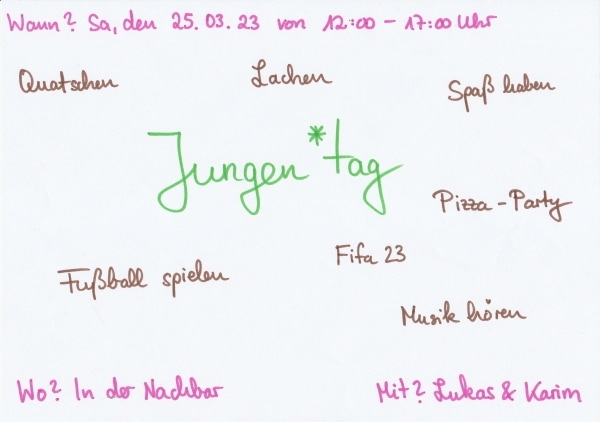 Wann? Sa, den 25.03.23 von 12:00 - 17:00 Uhr
Quatschen
Lachen
Spaß haben
Jungen*tag
Pizza-Party
Fifa 23
Fußball spielen
Musik hören
Wo? In der Nachbar
Mit? Lukas & Karim